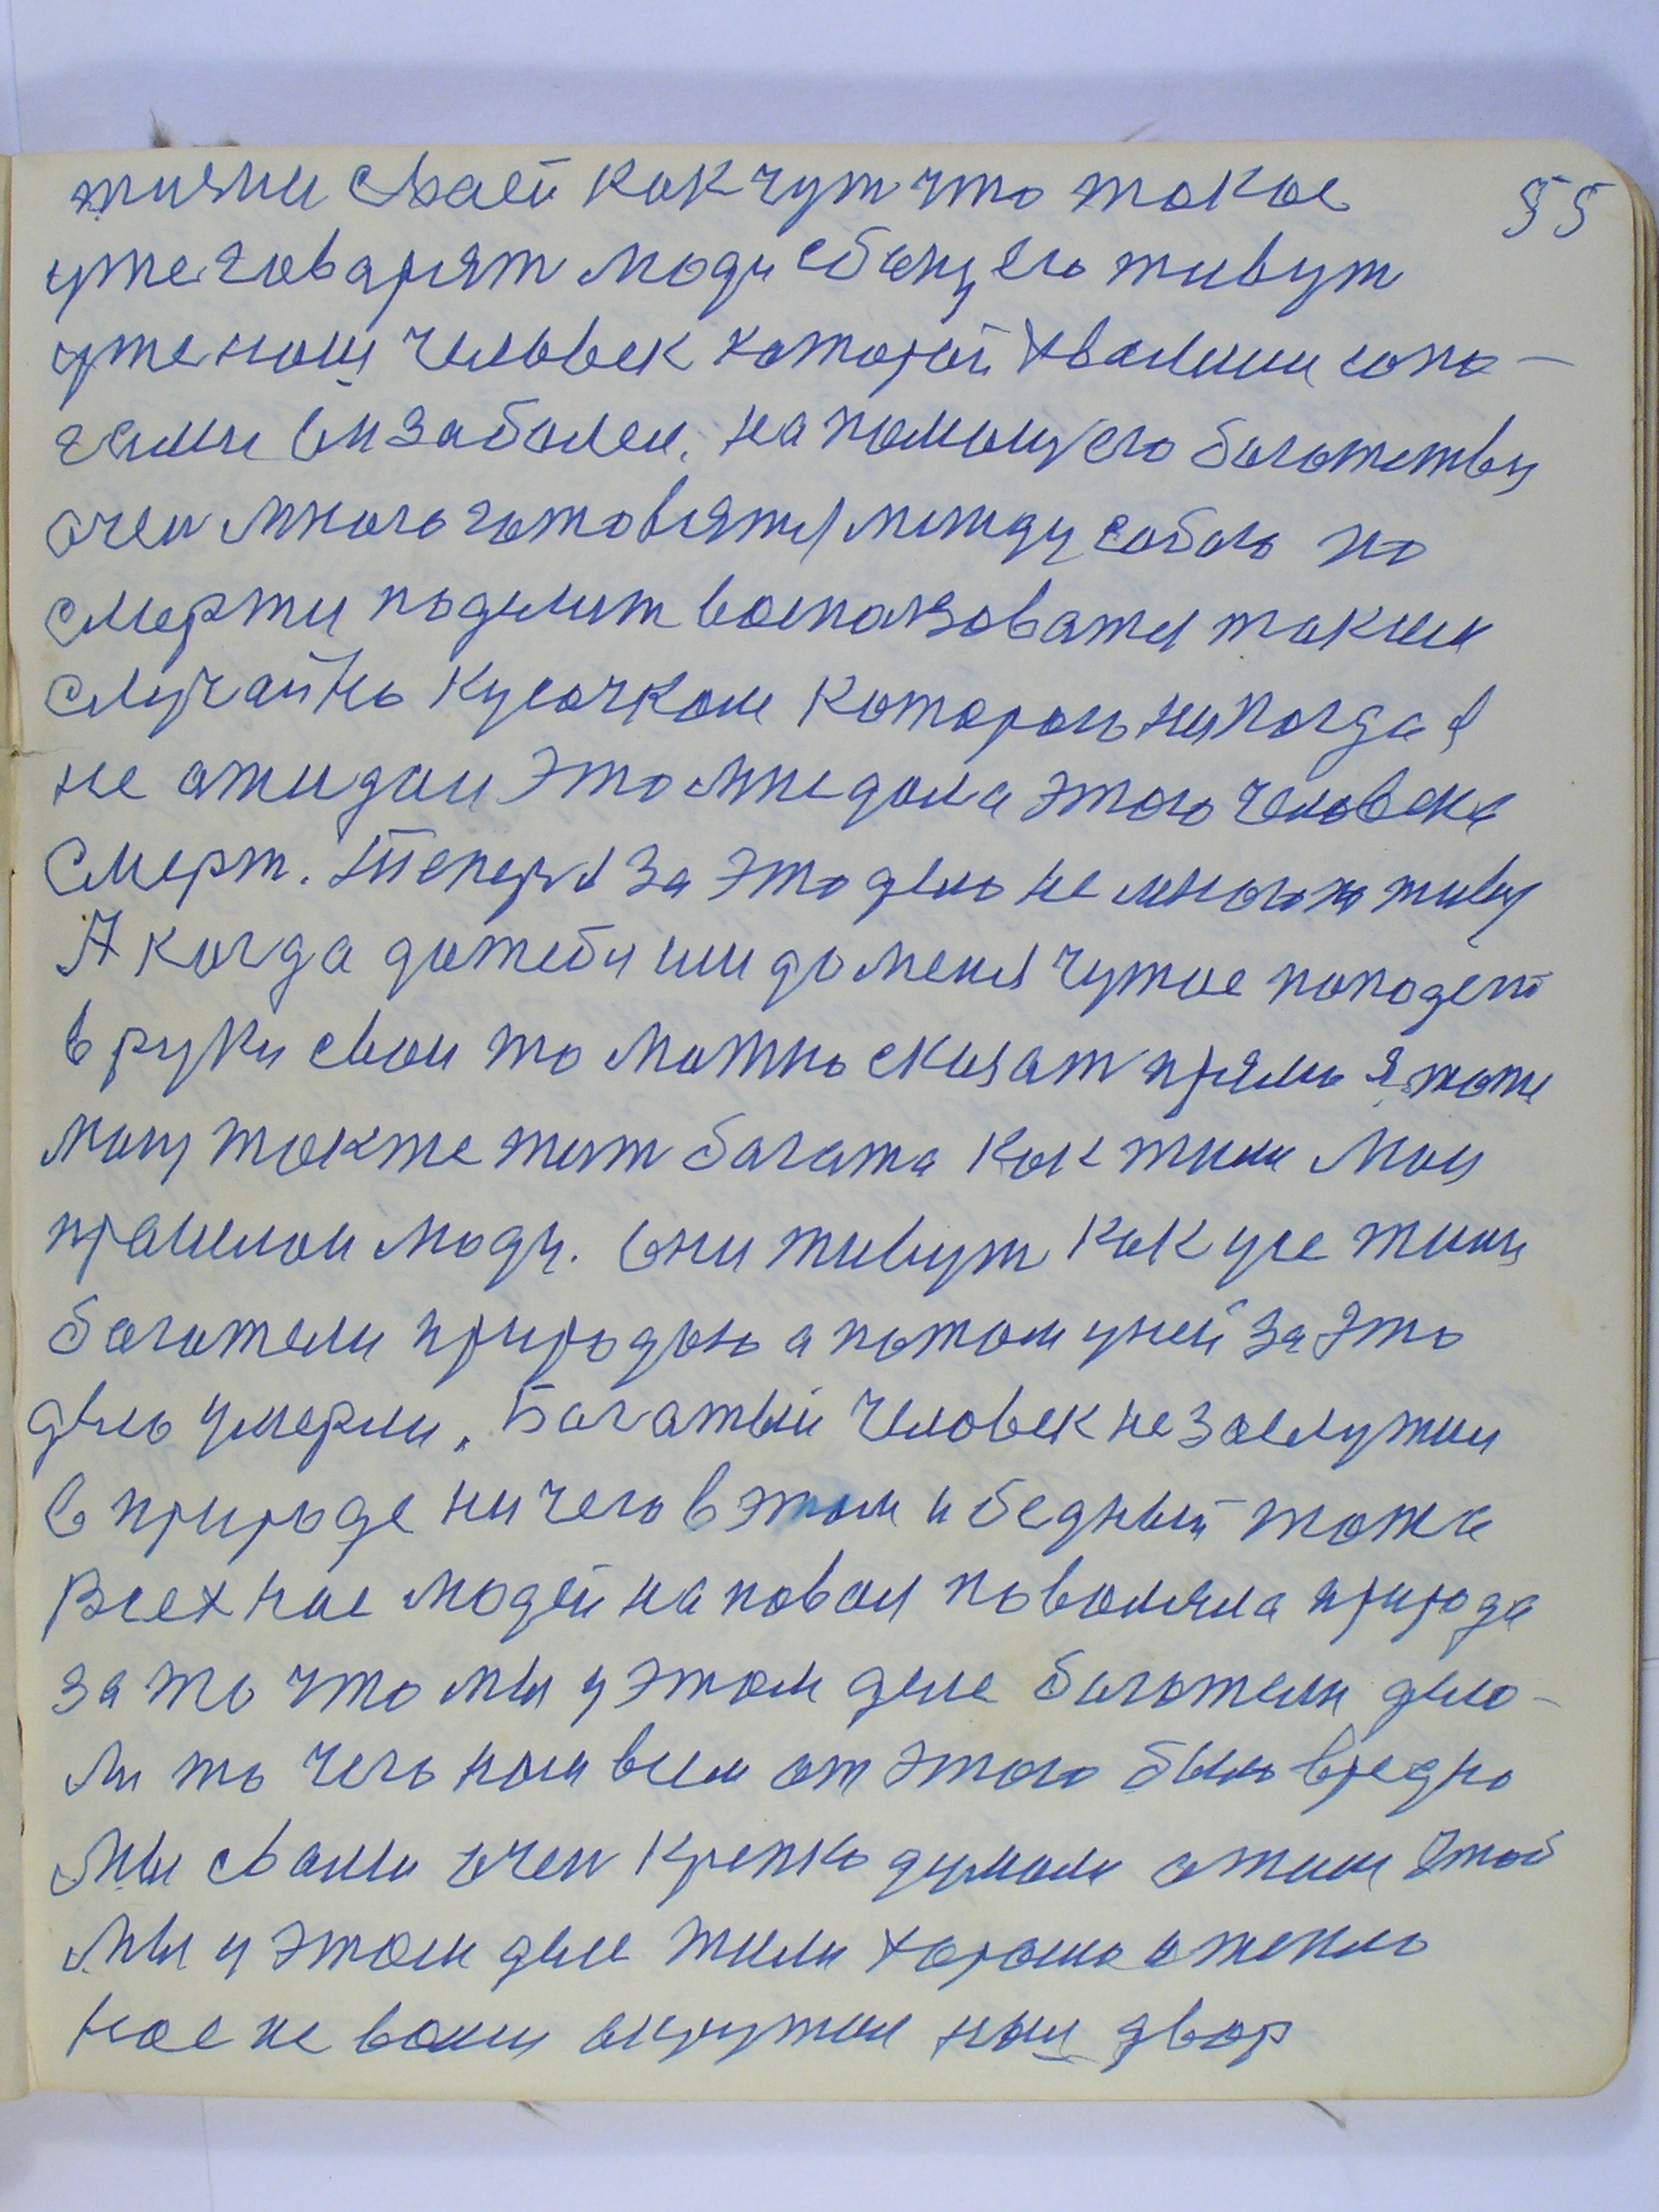 55
жизни сваей как чут что такое
уже говарят люди сбоку его живут
уже наш человек каторай хвалили сапо-
гами он заболел. на помощ его богатству
очен много готовятся между собою по
смерти поделит воспользоватся таким
случайно кусочком которого никогда я
не ажидал это мне дала этого человека
смерт. Теперя за это дело не много живу
А когда до тебя или до меня чужое пападет
в руки свои то можно сказат прямо я тоже
могу также жит багата как жили мои
прашлаи люди. Они живут как уже жили
багатели природою а потом у ней за это
дело умерли. Багатый человек не заслужил
в природе ничего в этом и бедный тоже
Всех нас людей наповал поволяла природа
за то что мы у этом деле багатели дела-
ли то чего нам всем от этого было вредно
Мы с вами очен крепко думали а жили
мы у этом деле жили харашо а тепло
нас не окружил наш двор